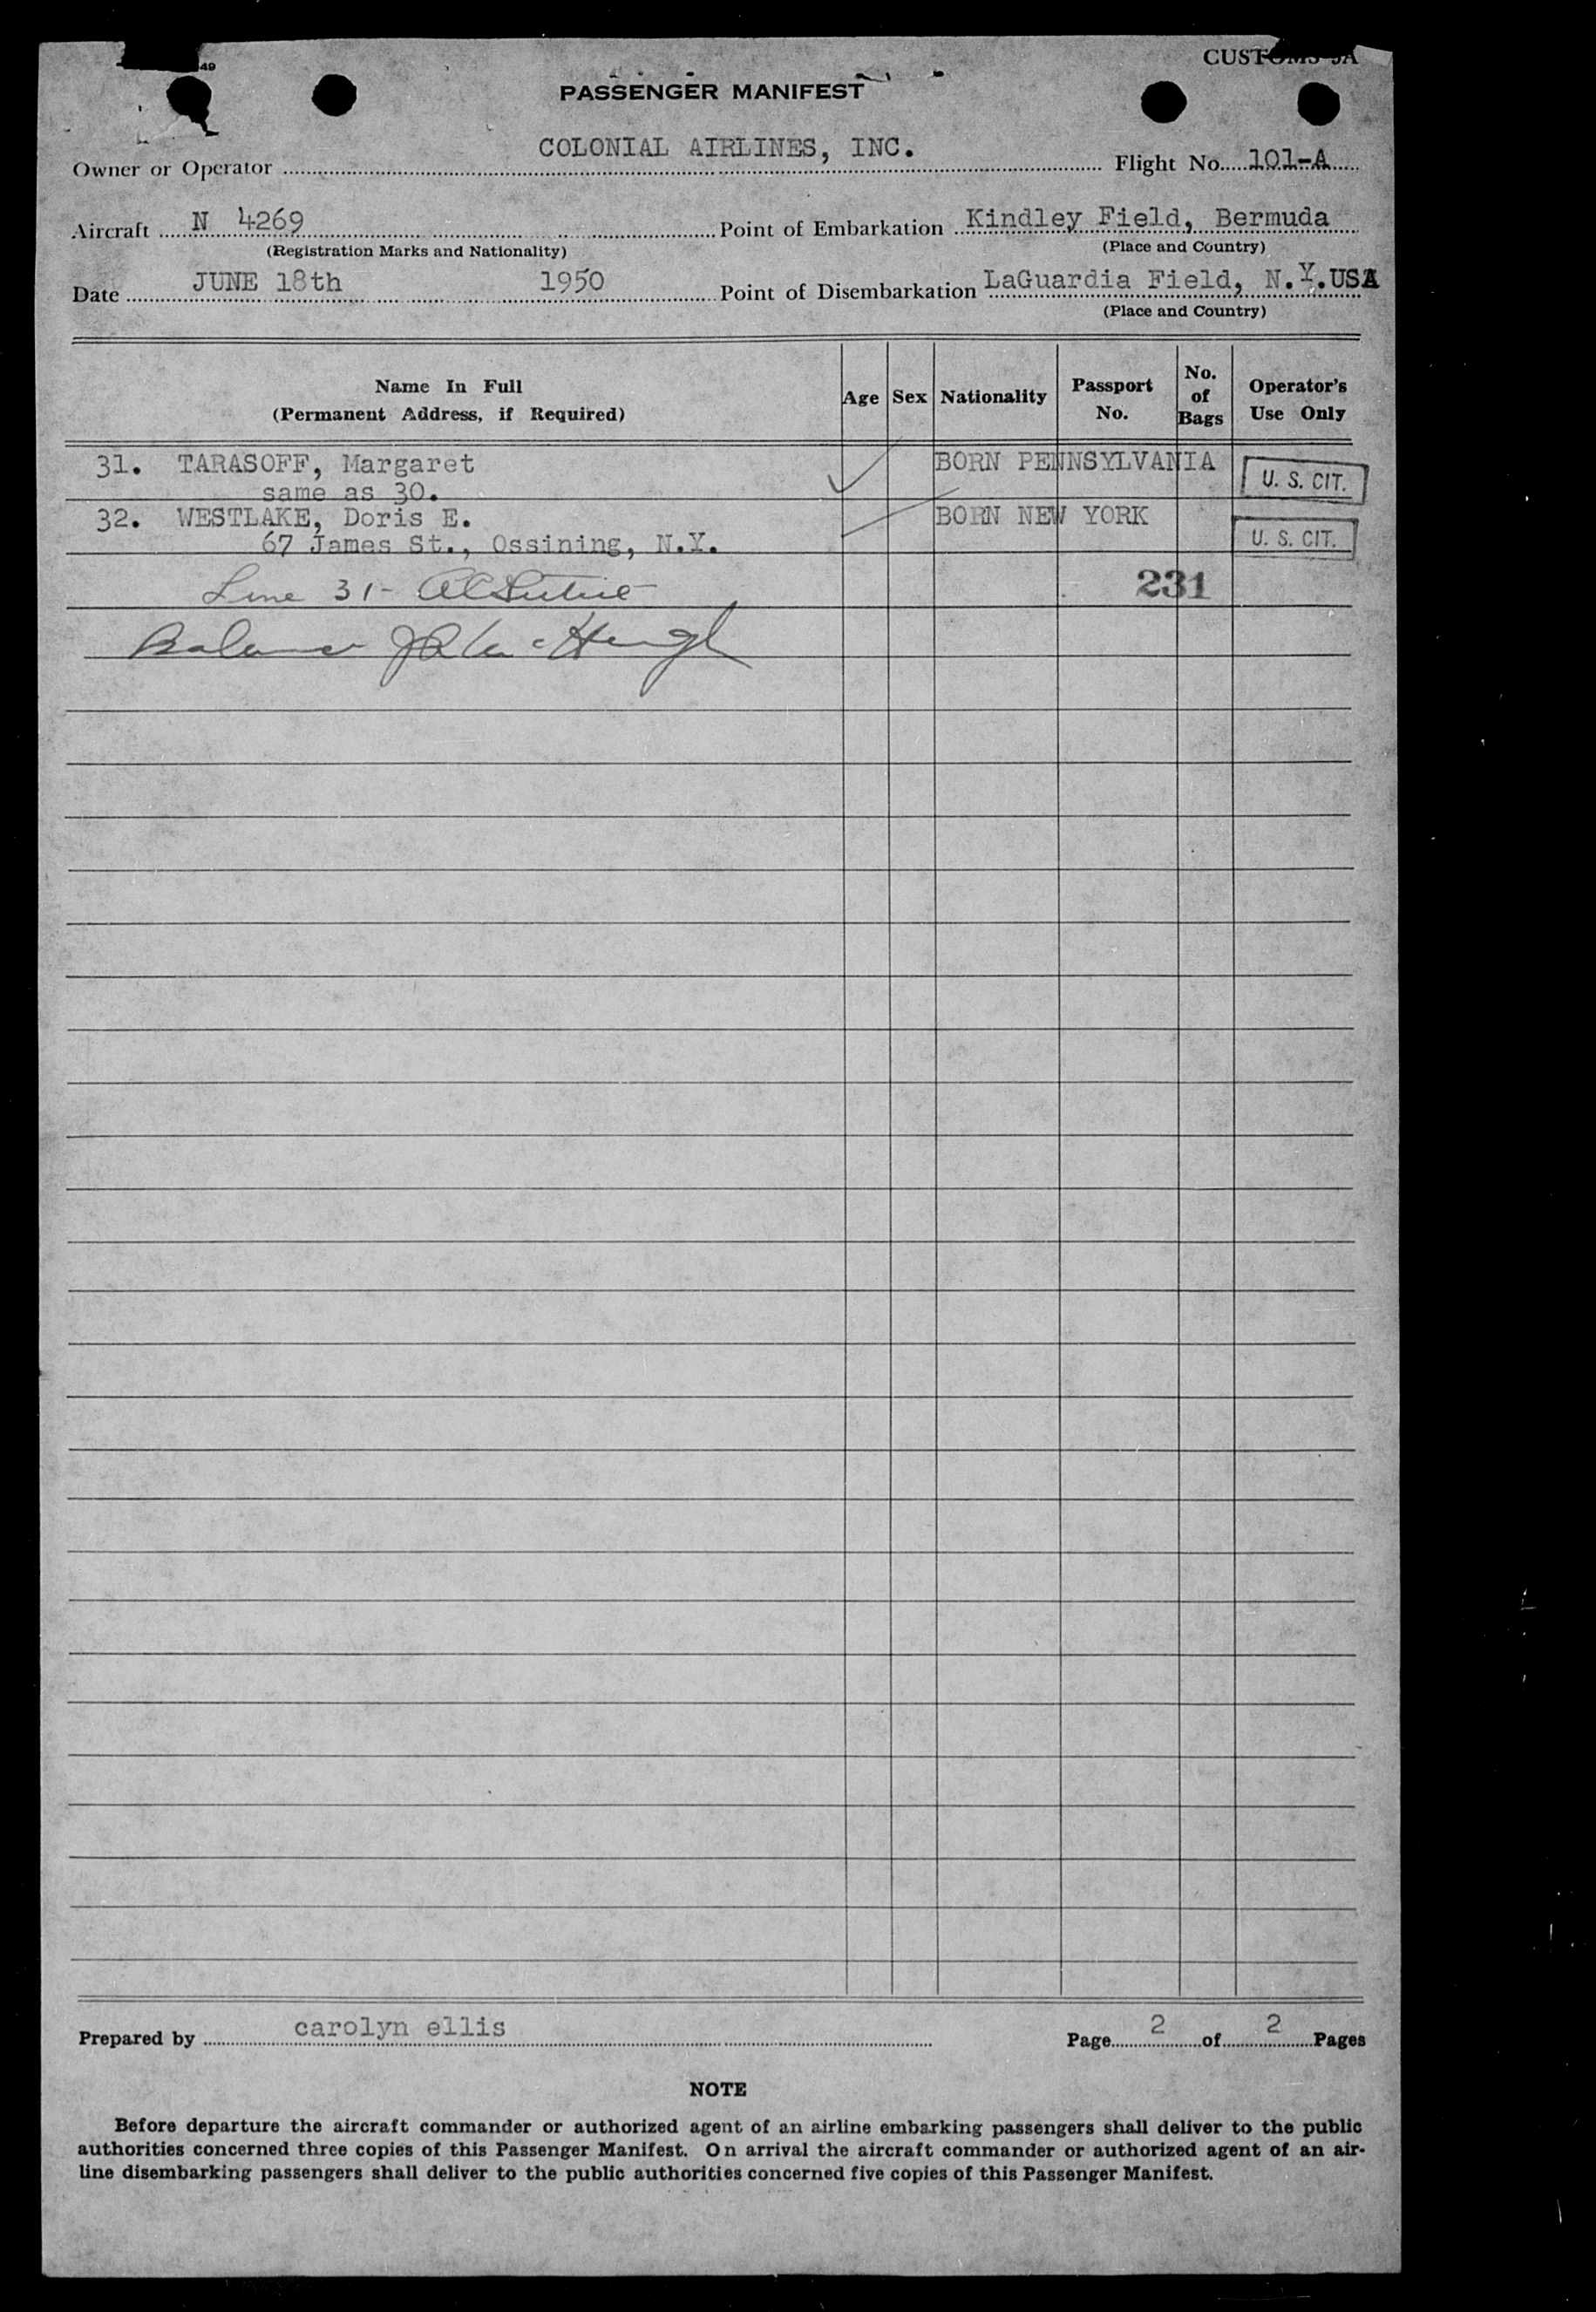 49
CUSTOMS 5A
PASSENGER MANIFEST
Owner or Operator COLONIAL AIRLINES, INC. Flight No. 101-A
Aircraft N 4269 Point of Embarkation Kindley Field, Bermuda
(Registration Marks and Nationality) (Place and Country)
Date JUNE 18th 1950 Point of Disembarkation LaGuardia Field, N.Y.USA
(Place and Country)
Name In Full (Permanent Address, if Required) Age Sex Nationality Passport No. No. of Bags Operator's Use Only
31. TARASOFF, Margaret BORN PENNSYLVANIA U. S. CIT.
same as 30.
32. WESTLAKE, Doris E. BORN NEW YORK
67 James St., Ossining, N.Y. U. S. CIT.
Line 31- 231
Balance
Prepared by carolyn ellis Page 2 of 2 Pages
NOTE
Before departure the aircraft commander or authorized agent of an airline embarking passengers shall deliver to the public
authorities concerned three copies of this Passenger Manifest. On arrival the aircraft commander or authorized agent of an air-
line disembarking passengers shall deliver to the public authorities concerned five copies of this Passenger Manifest.